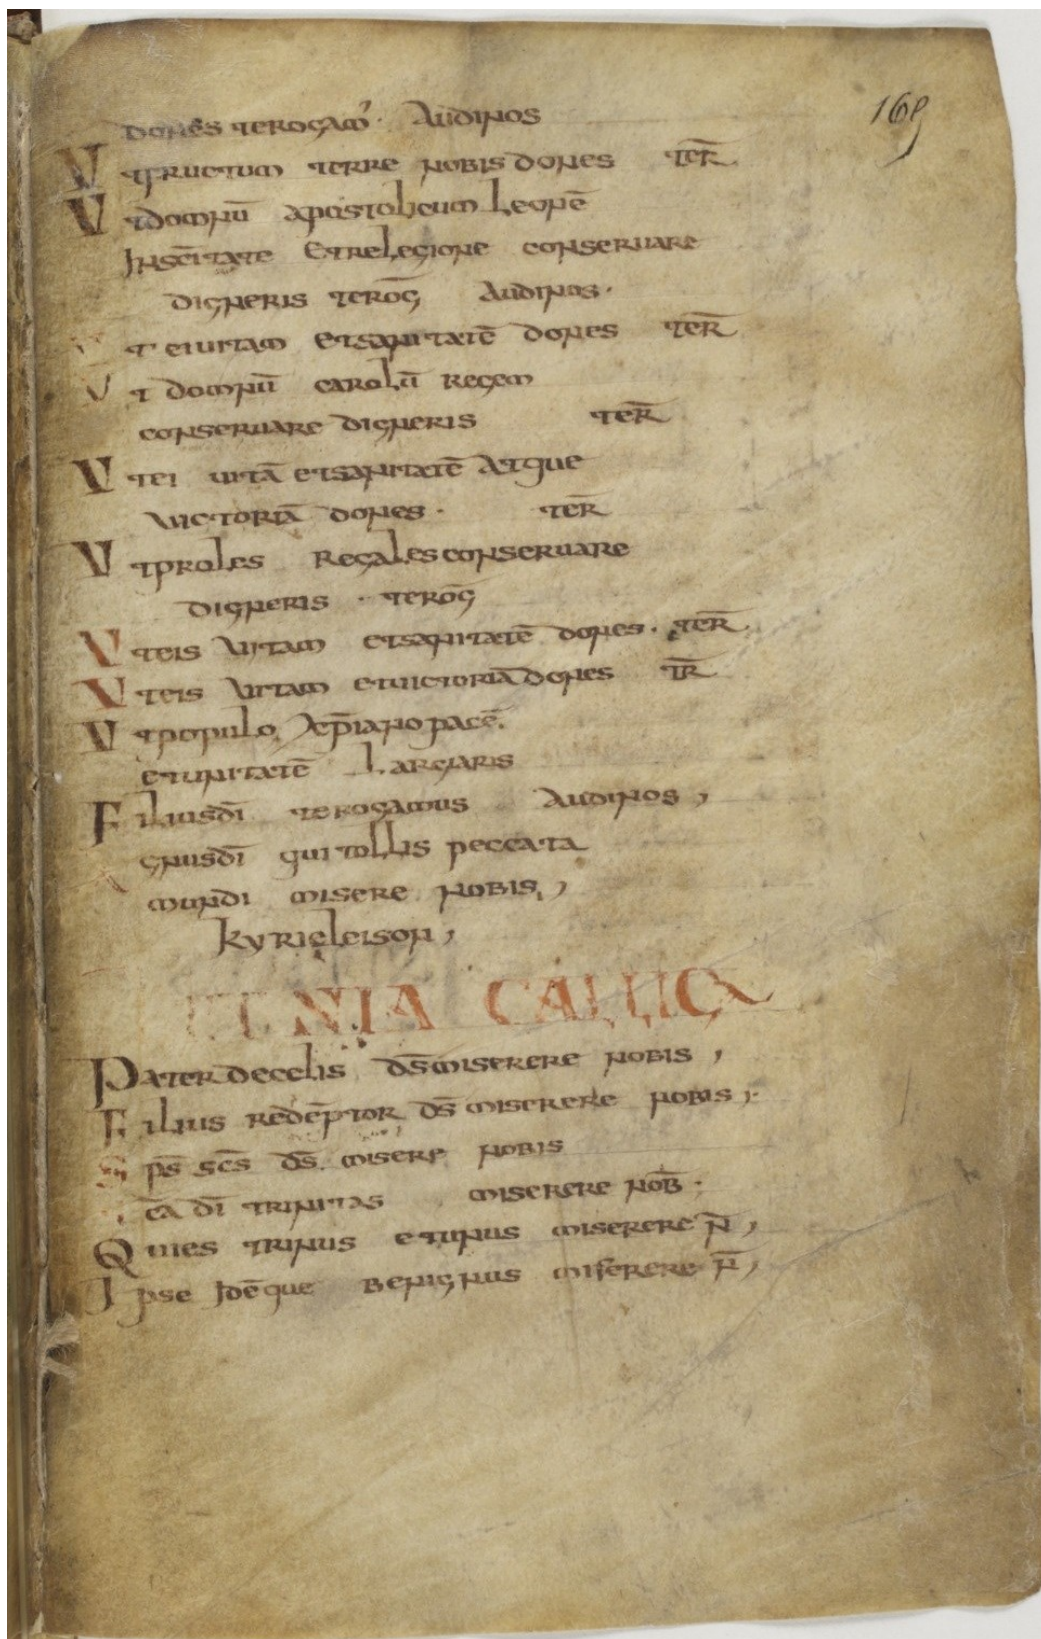 169
dones terogam᾽· Audinos
Utfructum terre nobis dones ter̄
Utdomnū apostolicum Leonē
Insc̄itate Etrelegione conseruare
digneris terog̅ Audinos·
Ut ei uitam Etsanitatē dones ter̄
Ut domnū carolū Regem
conseruare digneris ter̄
Utei uitā etsanitatē Atque
Uictoriā dones· ter̄
Utproles Regales conseruare
digneris · terog̅
Uteis Uitam etsanitatē dones· ter̄
Uteis Uitam etuictoriā dones tr̄
Utpopulo xp̄iano pacē.
etunitatē Largiaris
Filiusdī terogamus Audinos,
Agnusdī qui tollis peccata
mundi misere nobis,
kyrieleison,
LETANIA GALLICA
Pater decelis d̄s miserere nobis,
Filius redēptor d̄s miserere nobis;
Sps̄ sc̄s d̄s misere nobis
Sc̄a dī trinitas miserere nob̄·
Quies trinus etunus miserere n̄,
Ipse Idēque benignus miserere n̄,